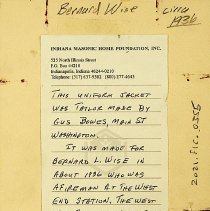 Bernard Wise circa
1936
INDIANA MASONIC HOME FOUNDATION, INC.
525 North Illinois Street
P.O. Box 44210
Indianapolis, Indiana 46244-0210
Telephone: (317) 637-9382 (800) 277-4643
THIS UNIFORM JACKET
WAS TAYLOR MADE BY
GUS BOWES, MAIN ST
WASHINGTON.
IT WAS MADE FOR
BERNARD L. WISE IN
ABOUT 1936 WHO WAS
A FIREMAN AT THE WEST
END STATION. THE WEST
2021.FIC.0355